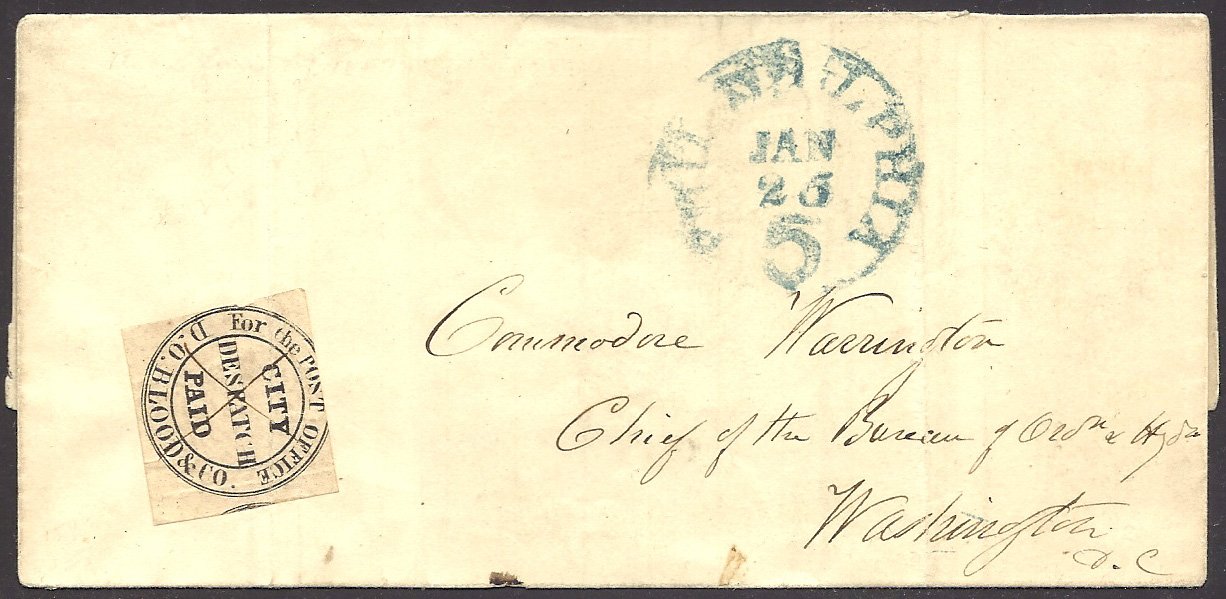 PHILADELPHIA
JAN
25
5
D.O.BLOOD & CO. For the POST OFFICE
CITY
DESPATCH
PAID
Commodore Warrington
Chief of the Bureau of Ordn & Hydr
Washington
D. C